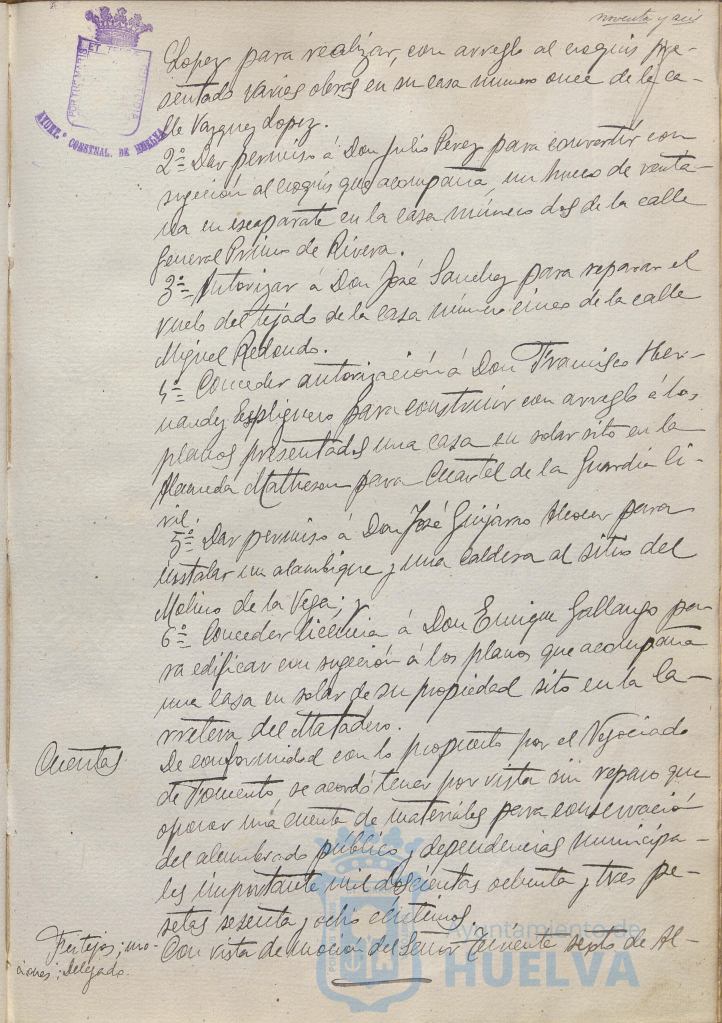 noventa y seis
PORTUS MARIS ET TERRE CUSTODIA
AYUNT.º CONSTNAL. DE HUELVA
Lopez para realizar, con arreglo al croquis pre-
sentado varias obras en su casa numero once de la ca-
lle Vazquez Lopez.
2º= Dar permiso á Don Julio Perez para convertir con
sugeción al croquis que acompaña, un hueco de venta-
na en escaparate en la casa número dos de la calle
General Primo de Rivera.
3º= Autorizar á Don José Sanchez para reparar el
vuelo del tejado de la casa número cinco de la calle
Miguel Redondo.
4º= Conceder autorización á Don Francisco Her-
nandez Espliguero para construir con arreglo á los
planos presentados una casa en solar sito en la
Alameda Matheson para Cuartel de la Guardia Ci-
vil.
5º= Dar permiso á Don José Guijarro Alcocer para
instalar un alambique y una caldera al sitio del
Molino de la Vega; y
6º= Conceder licencia á Don Enrique Gallango pa-
ra edificar con sugeción á los planos que acompaña
una casa en solar de su propiedad sito en la Ca-
rretera del Matadero.
Cuentas
De conformidad con lo propuesto por el Negociado
de Fomento, se acordó tener por vista sin reparo que
oponer una cuenta de materiales para conservación
del alumbrado público y dependencias municipa-
les importante mil doscientas ochenta y tres pe-
setas sesenta y ocho céntimos.
Festejos; mo-
ciones; Delegado.
Con vista de moción del Señor Teniente sexto de Al-
Ayuntamiento de
HUELVA